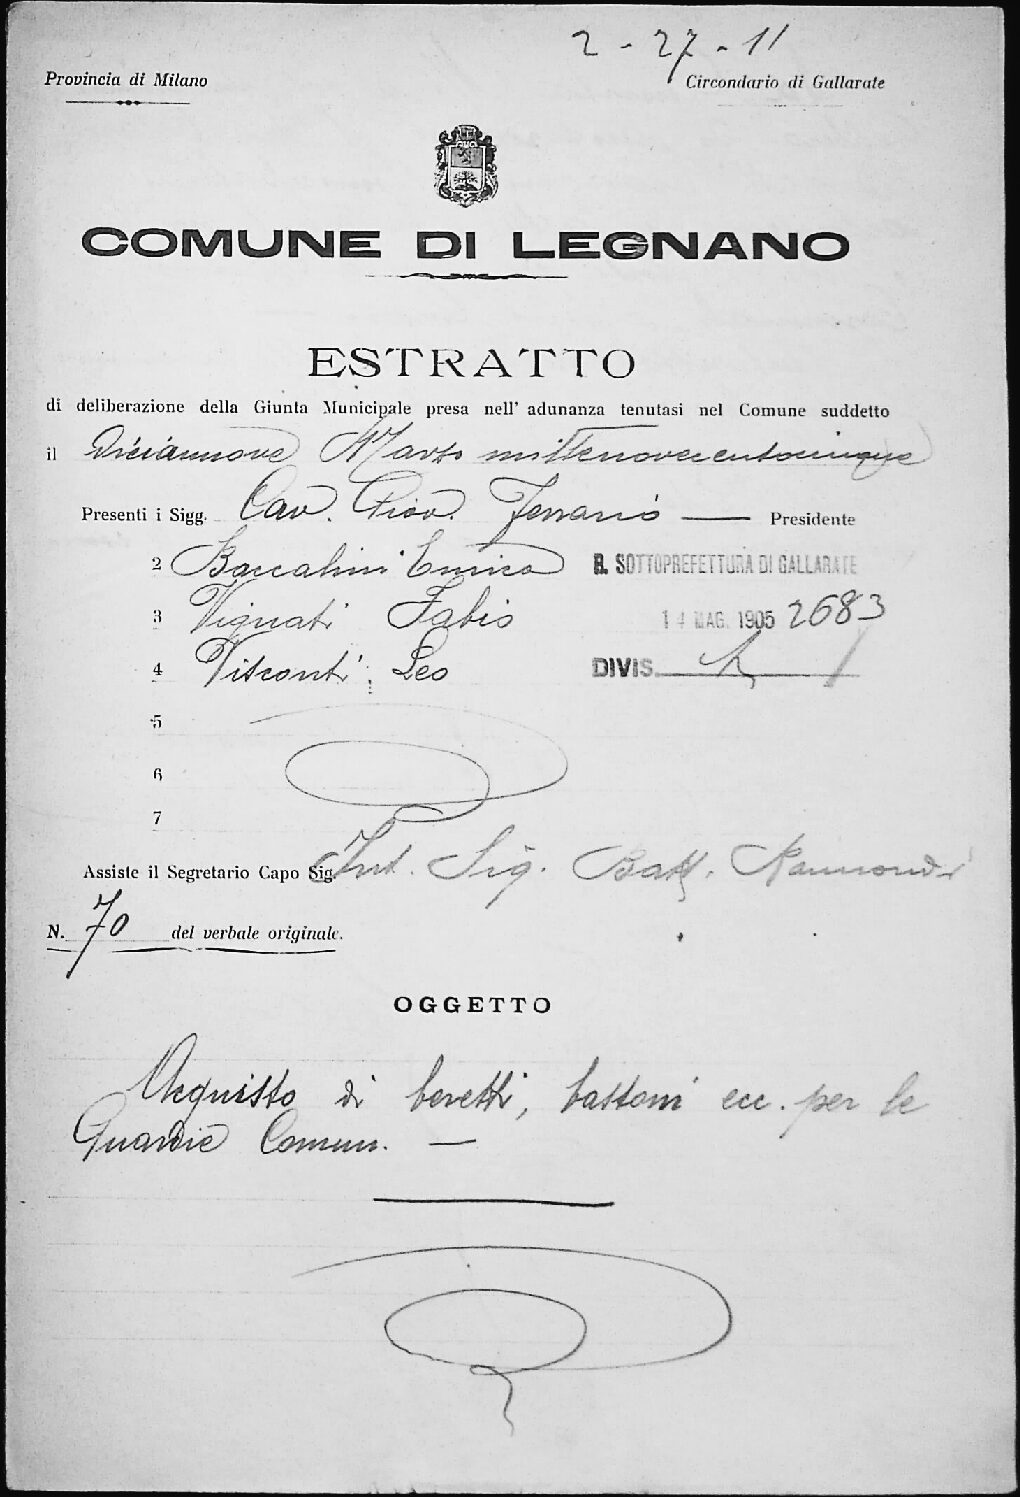 2 - 27 - 11
Provincia di Milano
Circondario di Gallarate
COMUNE DI LEGNANO
ESTRATTO
di deliberazione della Giunta Municipale presa nell' adunanza tenutasi nel Comune suddetto
il Diciannove Marzo millenovecentocinque
Presenti i Sigg. Cav. Giov. Ferrario — Presidente
2 Baccalini Enrico R. SOTTOPREFETTURA DI GALLARATE
3 Vignati Fabio 14 MAG. 1905 2683
4 Visconti Leo DIVIS.
5
6
7
Assiste il Segretario Capo Sig. Int. Sig. Batt. Raimondi
N. 70 del verbale originale.
OGGETTO
Acquisto di beretti, bastoni ecc. per le
Guardie Comun. —